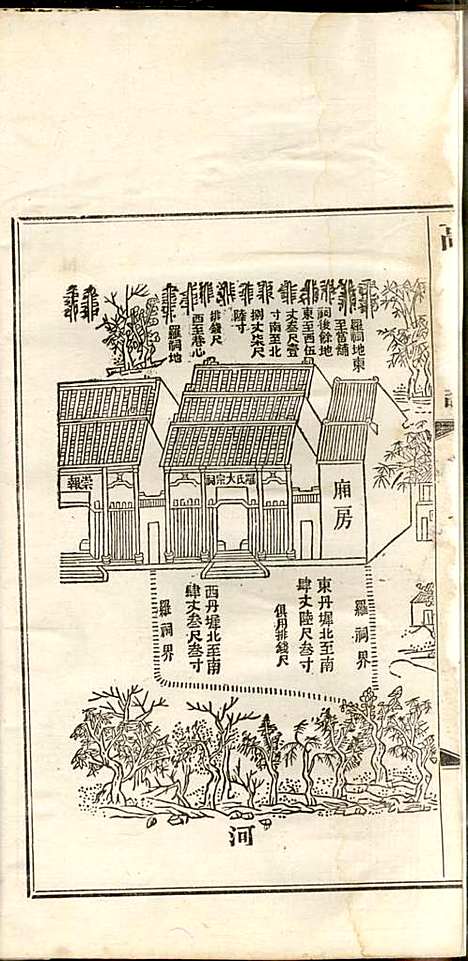 羅祠地東
至當舖
祠後餘地
東至西伍
丈叁尺壹
寸南至北
捌丈柒尺
陸寸
排錢尺
西至巷心
羅祠地
廂房
羅氏大宗祠
崇報
羅祠界
東丹墀北至南
肆丈陸尺叁寸
俱用排錢尺
西丹墀北至南
肆丈叁尺叁寸
羅祠界
河